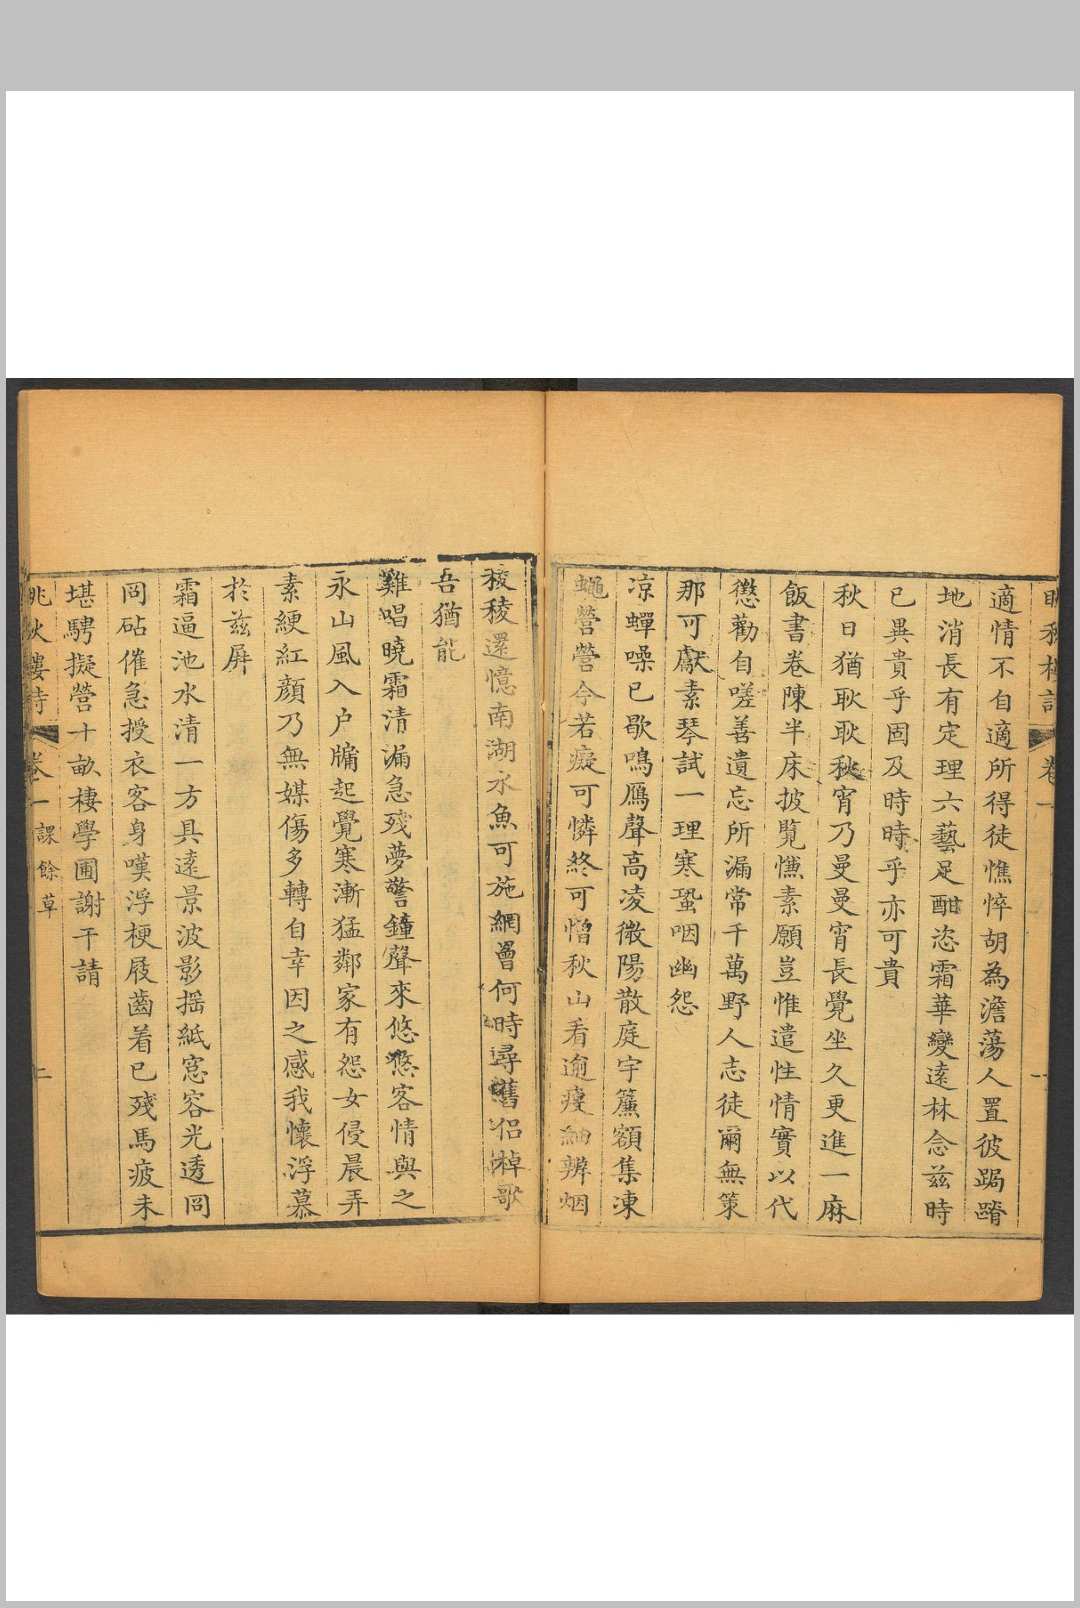 適情不自適所得徒憔悴胡為澹蕩人置彼跼蹐
地消長有定理六藝足酣恣霜華變遠林念兹時
已異貴乎固及時時乎亦可貴
秋日猶耿耿秋宵乃曼曼宵長覺坐久更進一麻
飯書卷陳半床披覧慊素願豈惟遣性情實以代
懲勸自嗟善遺忘所漏常千萬野人志徒爾無策
那可獻素琴試一理寒蛩咽幽怨
凉蟬噪已歇鳴鴈聲高凌微陽散庭宇簾額集凍
蠅營營今若癡可憐終可憎秋山看逾瘦細辨烟
稜稜還憶南湖水魚可施網罾何時尋舊侣棹歌
吾猶能
雞唱曉霜清漏急殘夢警鐘聲來悠悠客情與之
永山風入户牖起覺寒漸猛鄰家有怨女侵晨弄
素綆紅顔乃無媒傷多轉自幸因之感我懷浮慕
於兹屏
霜逼池水清一方具遠景波影揺紙窓容光透冏
冏砧催急授衣客身嘆浮梗屐齒着已殘馬疲未
堪騁擬營十畝棲學圃謝干請
眺秋樓詩 卷一 課餘草 二